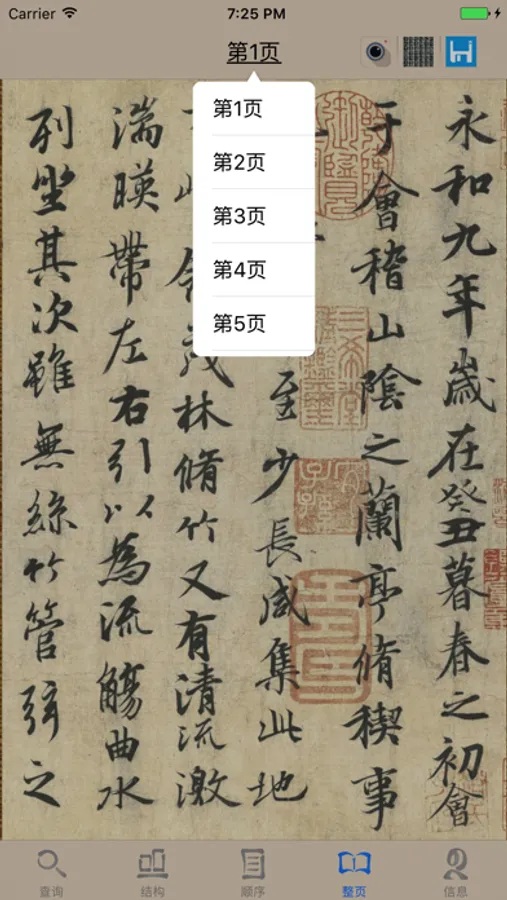 Carrier 7:25 PM
第1页
第1页
第2页
第3页
第4页
第5页
永和九年歲在癸丑暮春之初會
于會稽山陰之蘭亭脩稧事
至少長咸集此地
茂林脩竹又有清流激
湍暎帶左右引以為流觴曲水
列坐其次雖無絲竹管弦之
查询
结构
顺序
整页
信息